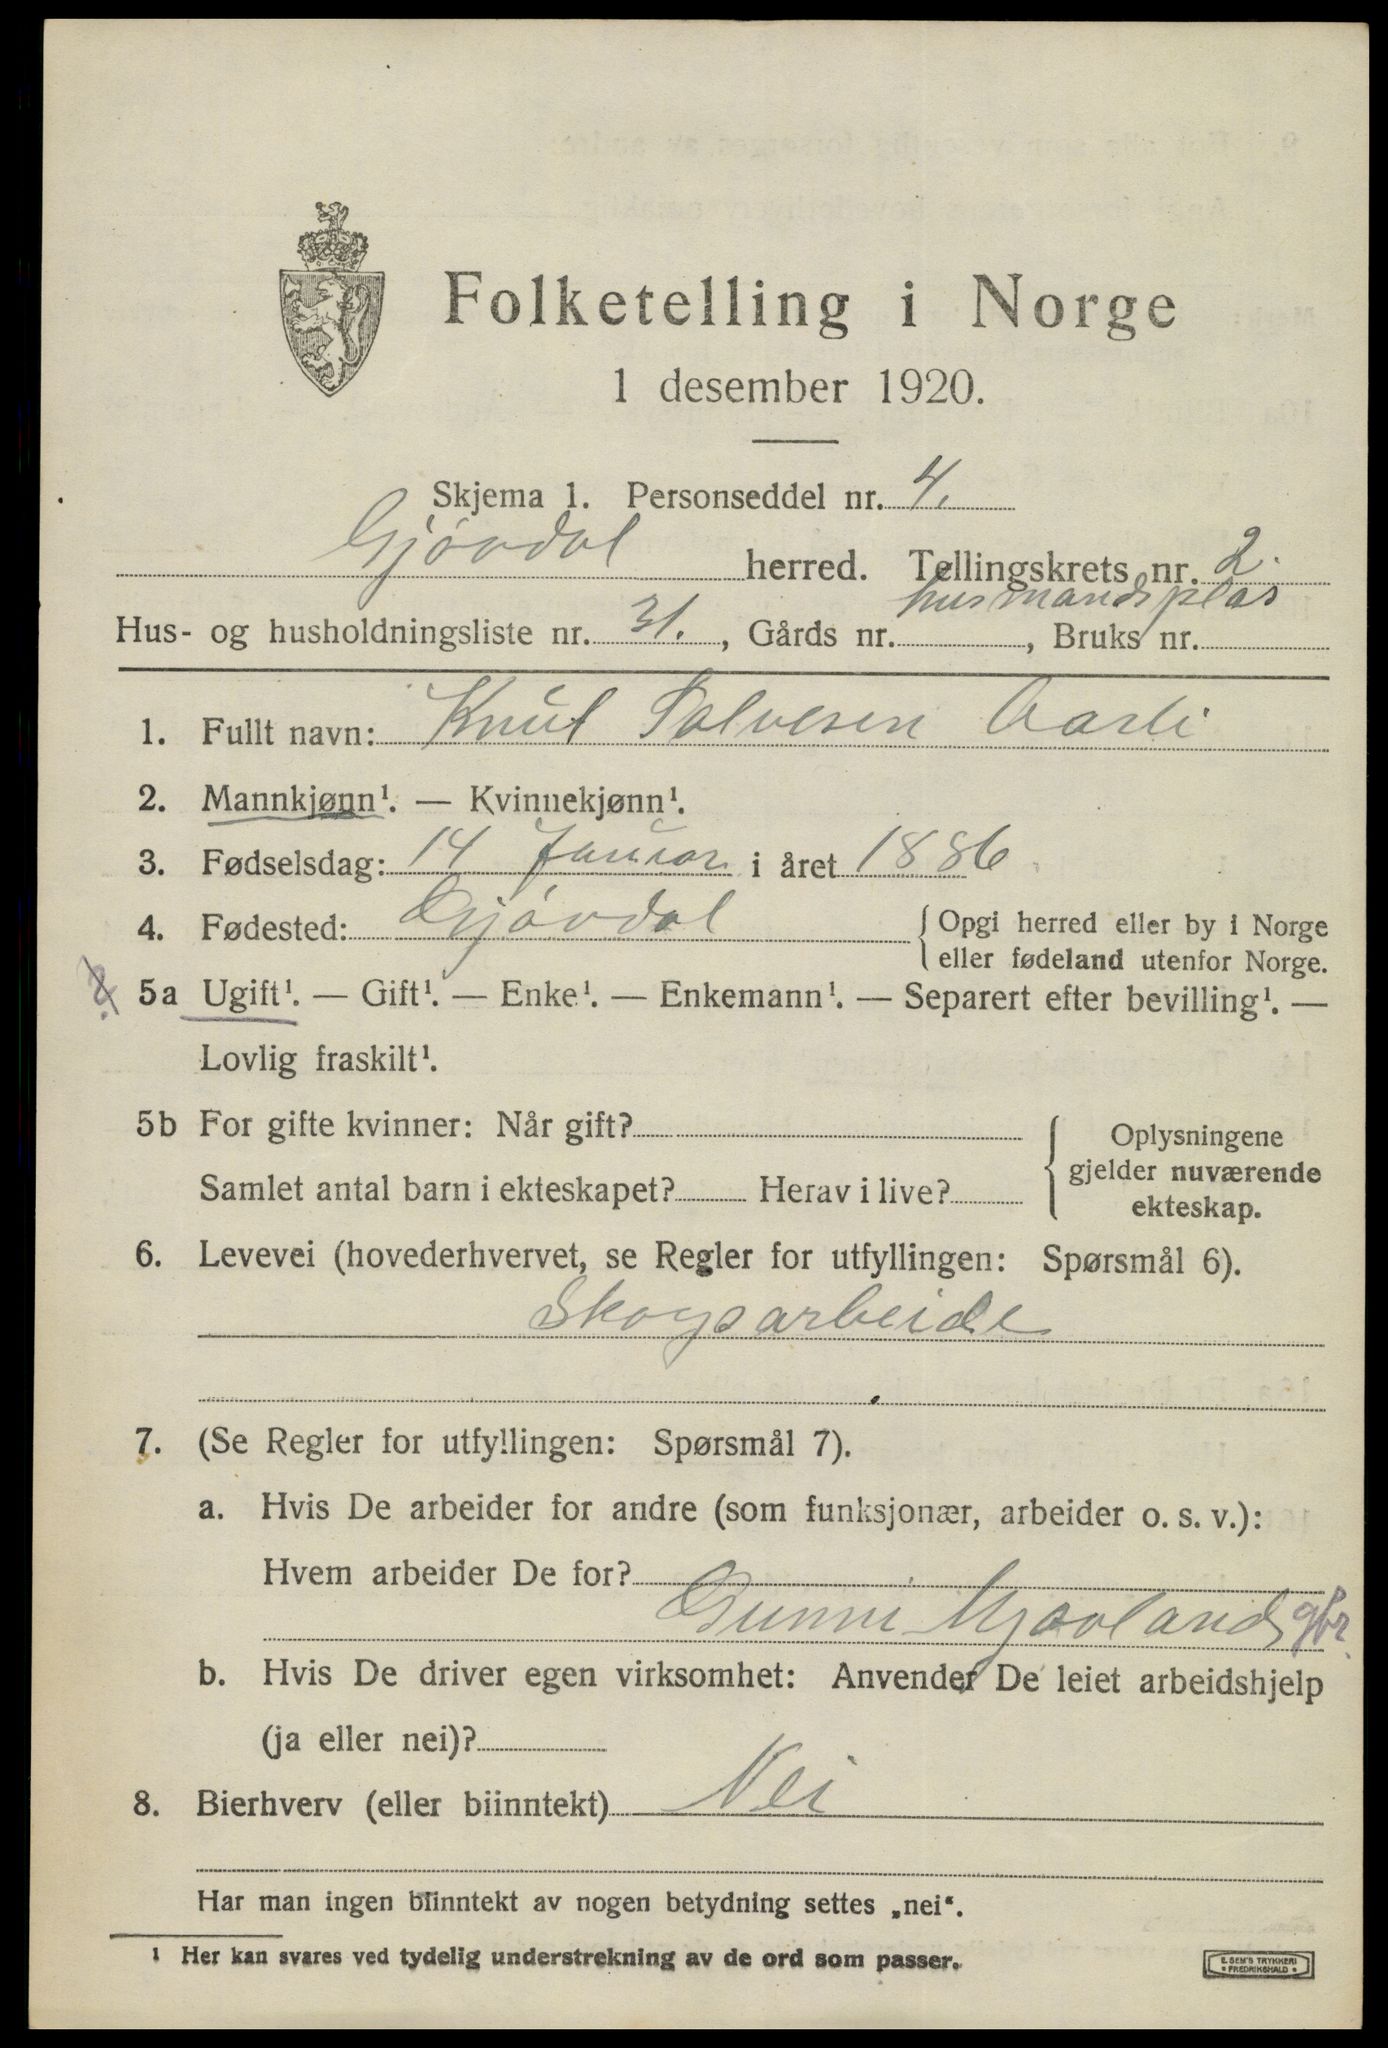 Folketelling i Norge
1 desember 1920.
Skjema 1. Personseddel nr. 4.
Gjövdal herred. Tellingskrets nr. 2.
husmandsplas
Hus- og husholdningsliste nr. 31., Gårds nr. , Bruks nr.
1. Fullt navn: Knut Salvesen Aasli
2. Mannkjønn¹. — Kvinnekjønn¹.
3. Fødselsdag: 14 Januar i året 1886
4. Fødested: Gjövdal { Opgi herred eller by i Norge
eller fødeland utenfor Norge.
5a Ugift¹. — Gift¹. — Enke¹. — Enkemann¹. — Separert efter bevilling¹. —
Lovlig fraskilt¹.
5b For gifte kvinner: Når gift?
Samlet antal barn i ekteskapet? Herav i live?
{ Oplysningene
gjelder nuværende
ekteskap.
6. Levevei (hovederhvervet, se Regler for utfyllingen: Spørsmål 6).
Skogsarbeide
7. (Se Regler for utfyllingen: Spørsmål 7).
a. Hvis De arbeider for andre (som funksjonær, arbeider o. s. v.):
Hvem arbeider De for?
gbr.
b. Hvis De driver egen virksomhet: Anvender De leiet arbeidshjelp
(ja eller nei)?
8. Bierhverv (eller biinntekt) Nei
Har man ingen biinntekt av nogen betydning settes „nei“.
¹ Her kan svares ved tydelig understrekning av de ord som passer.
E. SEM'S TRYKKERI
FREDRIKSHALD